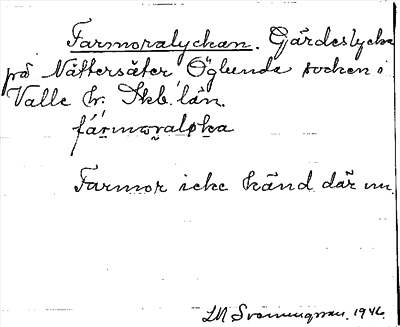 Farmoralyckan. Gärdeslycka
på Nättersäter Öglunda socken i
Valle hr. Skb. län.
fármoraløka
Farmor icke känd där nu.
LM Svenungsson. 1946.